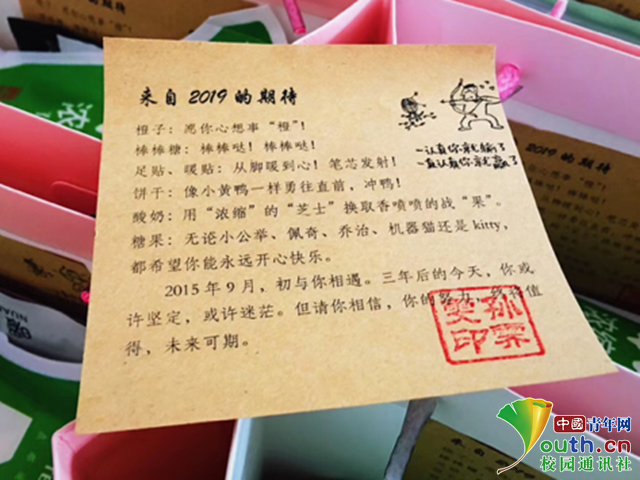 来自2019的期待
橙子：愿你心想事“橙”！
棒棒糖：棒棒哒！棒棒哒！
足贴、暖贴：从脚暖到心！笔芯发射！
饼干：像小黄鸭一样勇往直前，冲鸭！
酸奶：用“浓缩”的“芝士”换取香喷喷的战“果”。
糖果：无论小公举、佩奇、乔治、机器猫还是kitty，
都希望你能永远开心快乐。
2015年9月，初与你相遇。三年后的今天，你或
许坚定，或许迷茫。但请你相信，你的努力，终将值
得，未来可期。
一认真你就输了
一直认真你就赢了
2019的期待
中國青年网
Youth.cn
校园通讯社